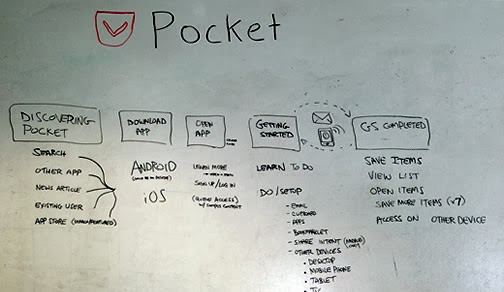 Pocket
DISCOVERING
POCKET
SEARCH
OTHER APP
NEWS ARTICLE
EXISTING USER
APP STORE
DOWNLOAD
APP
ANDROID
iOS
OPEN
APP
LEARN MORE
SIGN UP/LOG IN
GETTING
STARTED
LEARN TO DO
DO/SETUP
- EMAIL
- APPS
- BOOKMARKLET
- SHARE INTENT (MOBILE)
- OTHER DEVICES
• DESKTOP
• MOBILE PHONE
• TABLET
GS COMPLETED
SAVE ITEMS
VIEW LIST
OPEN ITEMS
SAVE MORE ITEMS
ACCESS ON OTHER DEVICE